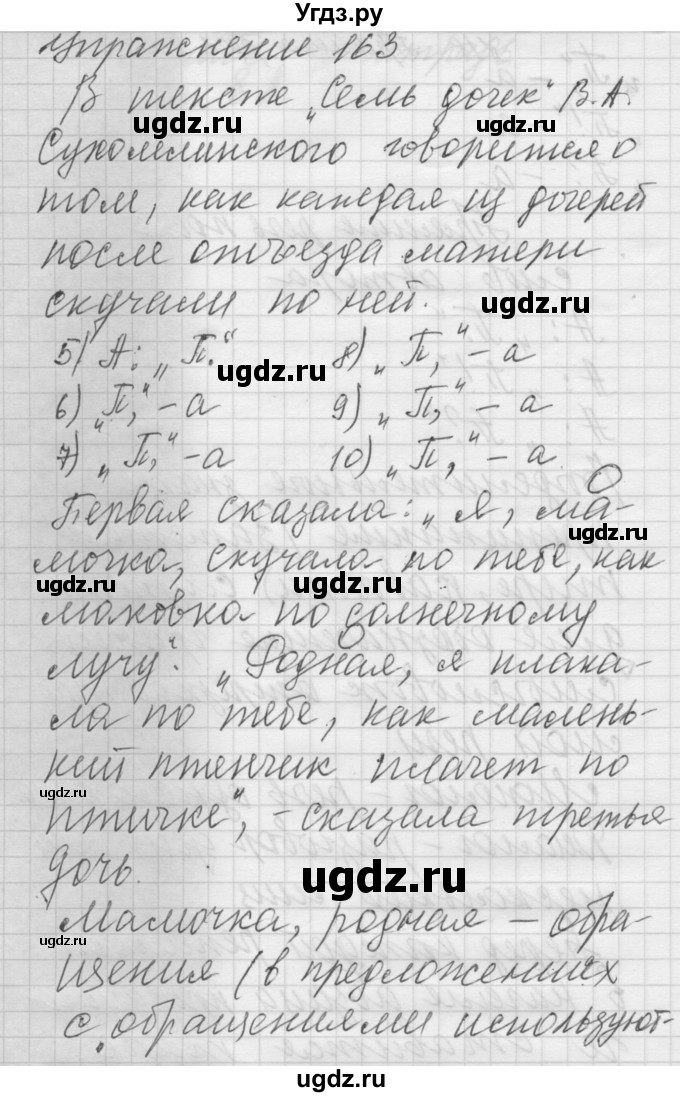 Угдз.ру
Упражнение 163
В тексте „Семь дочек" В.А.
ugdz.ru ugdz.ru
Сухомлинского говорится о
том, как каждая из дочерей
после отъезда матери
скучали по ней.
ugdz.ru
5) А: „П." 8) „П," – а
ugdz.ru
6) „П," – а 9) „П," – а
7) „П," – а 10) „П," – а
Первая сказала: „Я, ма-
ugdz.ru
мочка, скучала по тебе, как
ugdz.ru ugdz.ru
маковка по солнечному
лучу". „Родная, я плака-
ла по тебе, как малень-
кий птенчик плачет по
ugdz.ru
птичке", – сказала третья
дочь.
ugdz.ru
Мамочка, родная – обра-
ugdz.ru
щения (в предложениях
с обращениями используют-
ugdz.ru